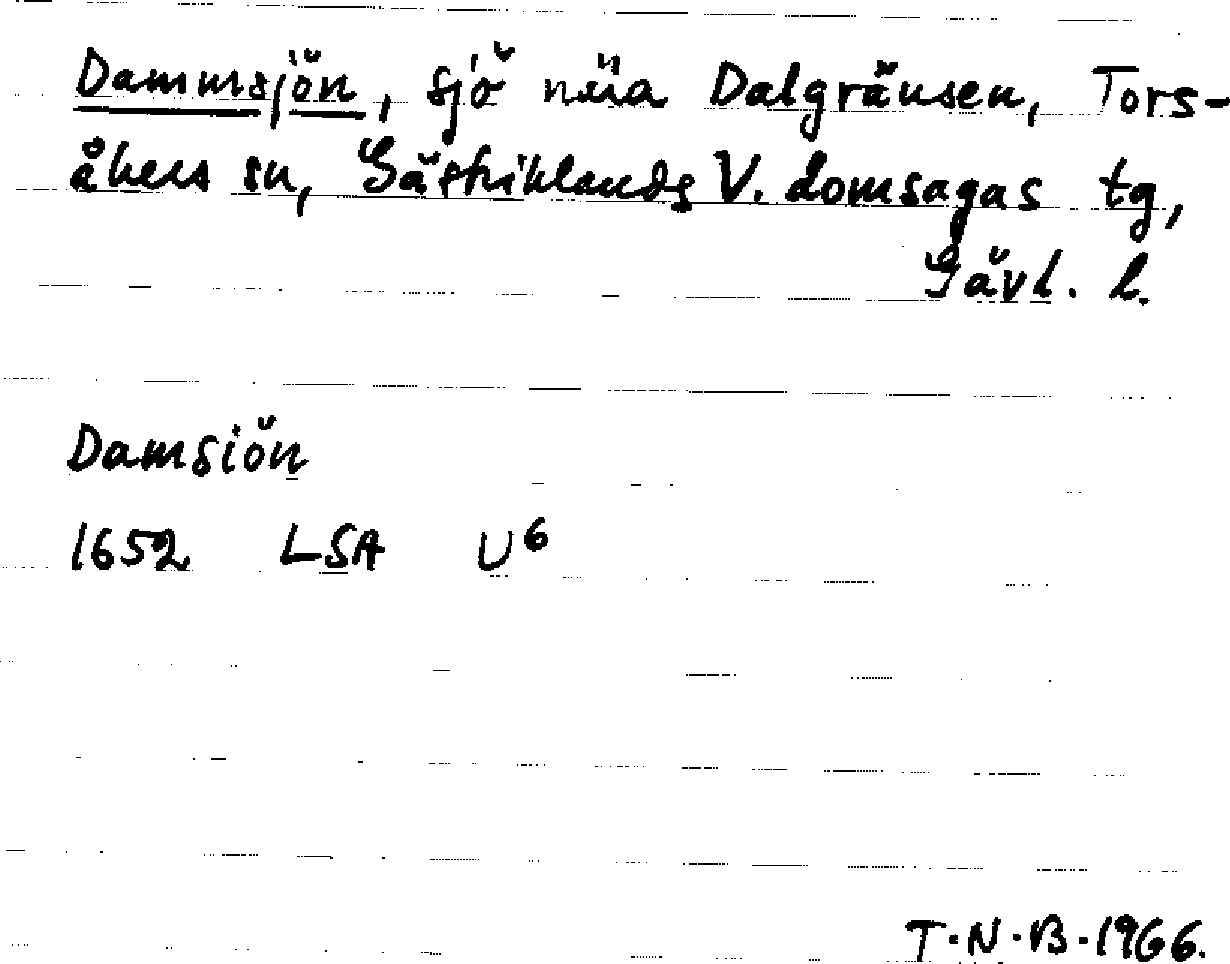 Dammsjön, sjö nära Dalgränsen, Tors-
åkers sn, Gästriklands V. domsagas tg,
Gävl. l.
Damsiön
1652 LSA U⁶
T.N.B. 1966.